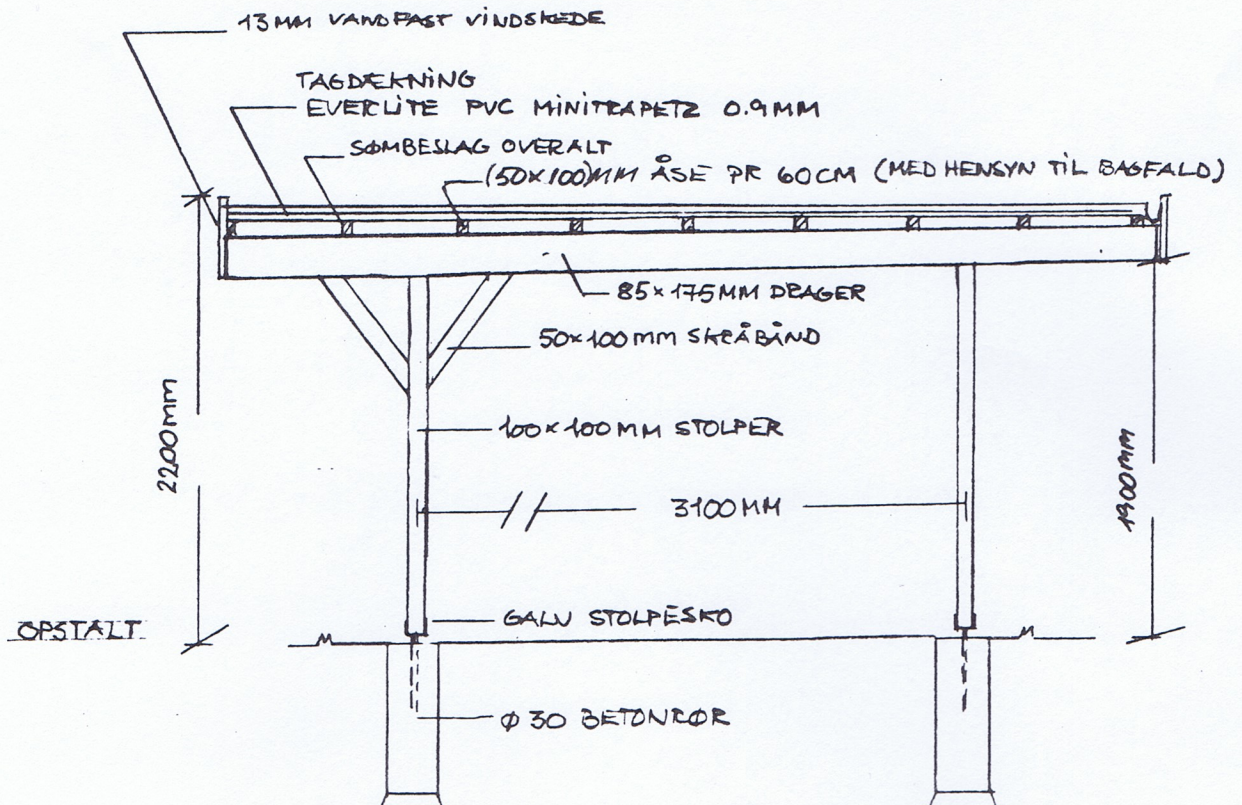 13MM VANDFAST VINDSKEDE
TAGDÆKNING
EVERLITE PVC MINITRAPETZ 0.9MM
SØMBESLAG OVERALT
(50×100)MM ÅSE PR 60CM (MED HENSYN TIL BAGFALD)
85×175MM DRAGER
50×100MM SKRÅBÅND
100×100MM STOLPER
2200MM
3100MM
1900MM
GALV STOLPESKO
OPSTALT
Ø 30 BETONRØR